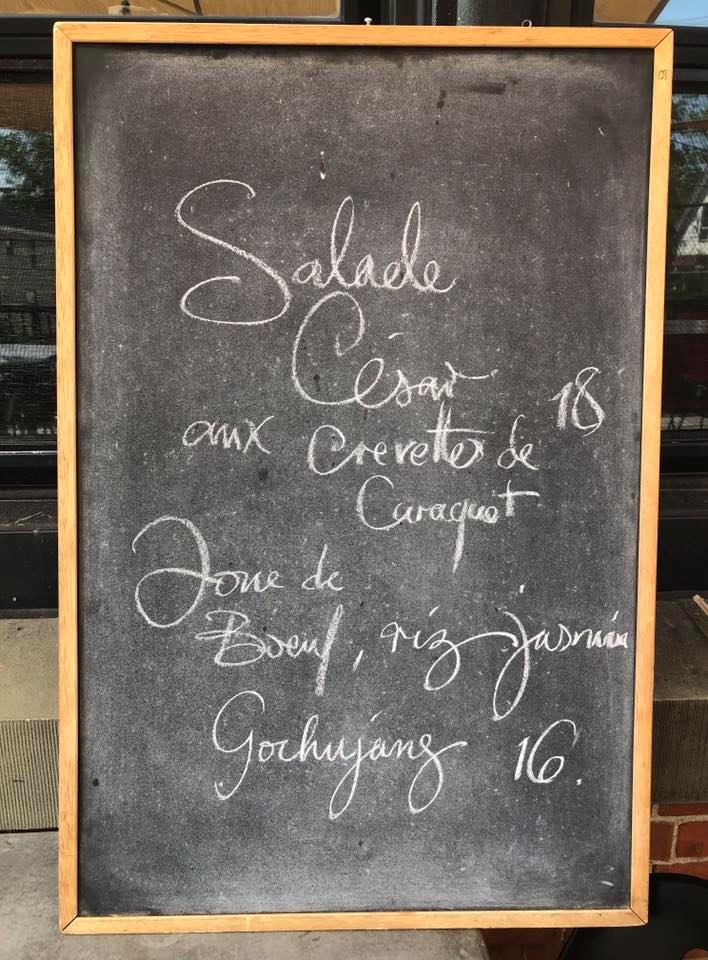 Salade
César
aux Crevettes de 18
Caraquet
Joue de
Boeuf, riz jasmin
Gochujang 16.